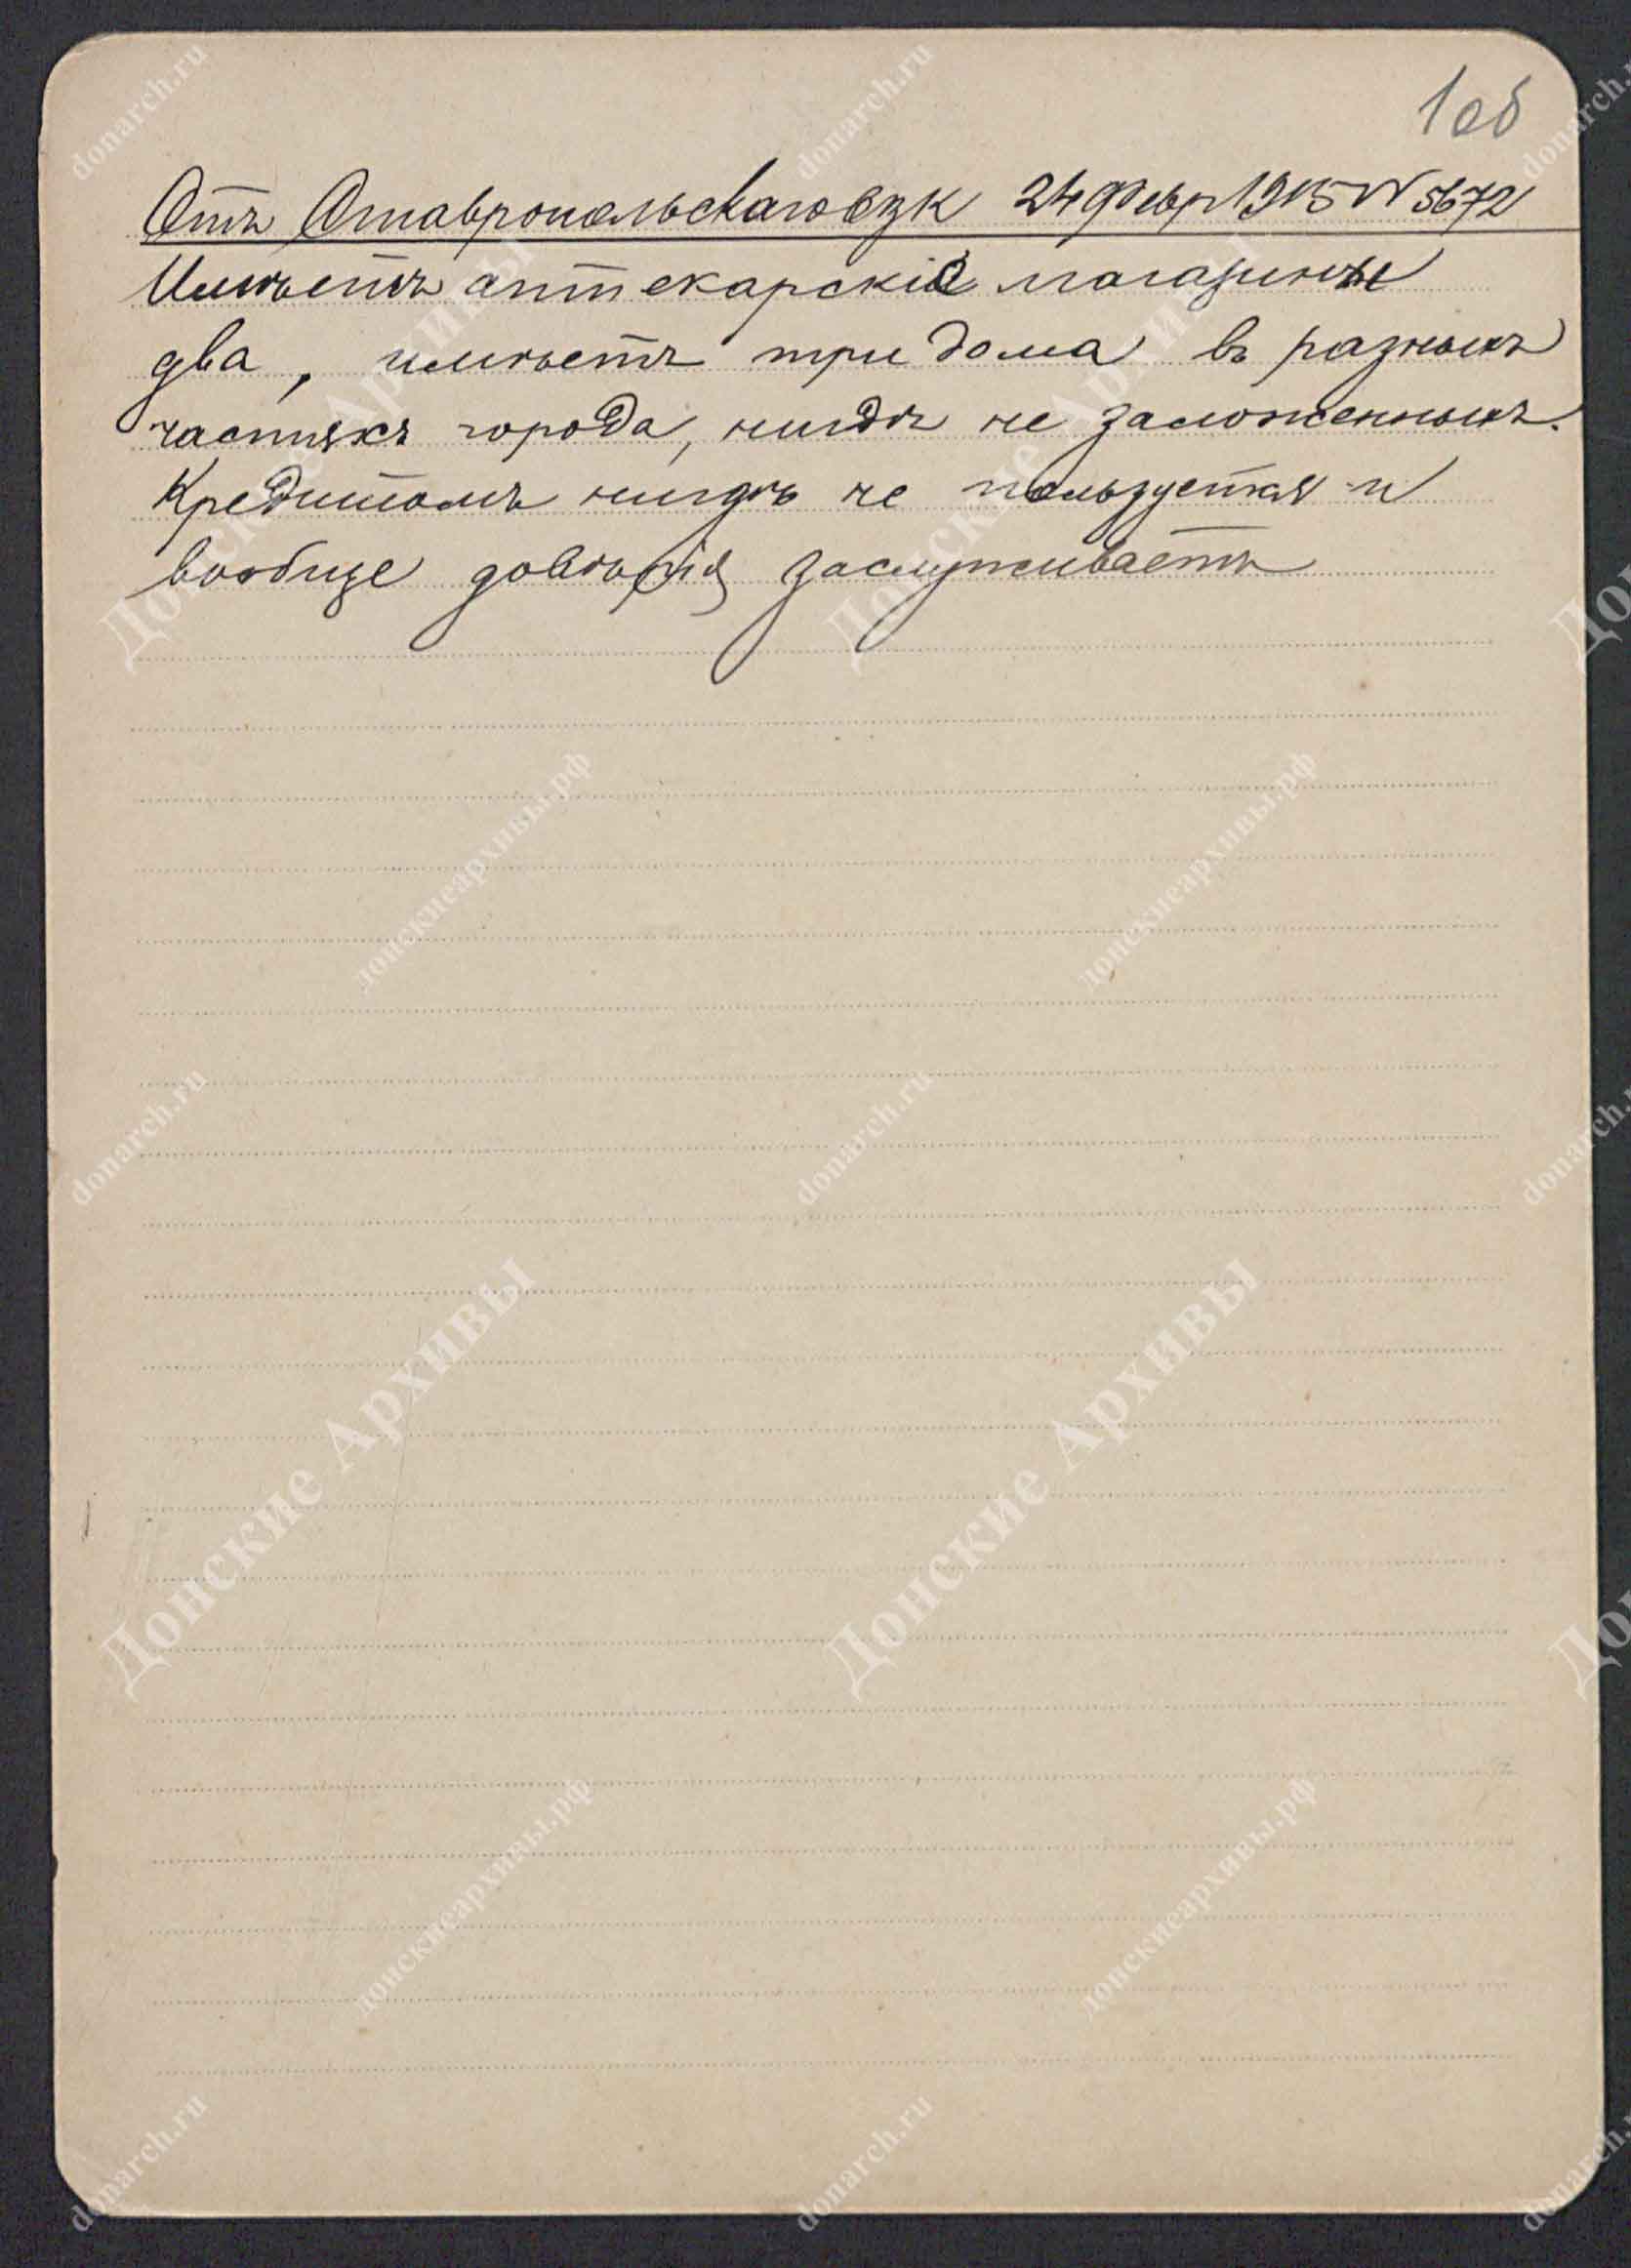 1об
Отъ Ставропольскаго ОВзК 24 Февр 1915 N 5672
Имѣетъ аптекарскіе магазины
два, имѣетъ три дома въ разныхъ
частяхъ города, нигдѣ не заложенныхъ.
Кредитомъ нигдѣ не пользуется и
вообще довѣрія заслуживаетъ
donarch.ru
Донские Архивы
донскиеархивы.рф